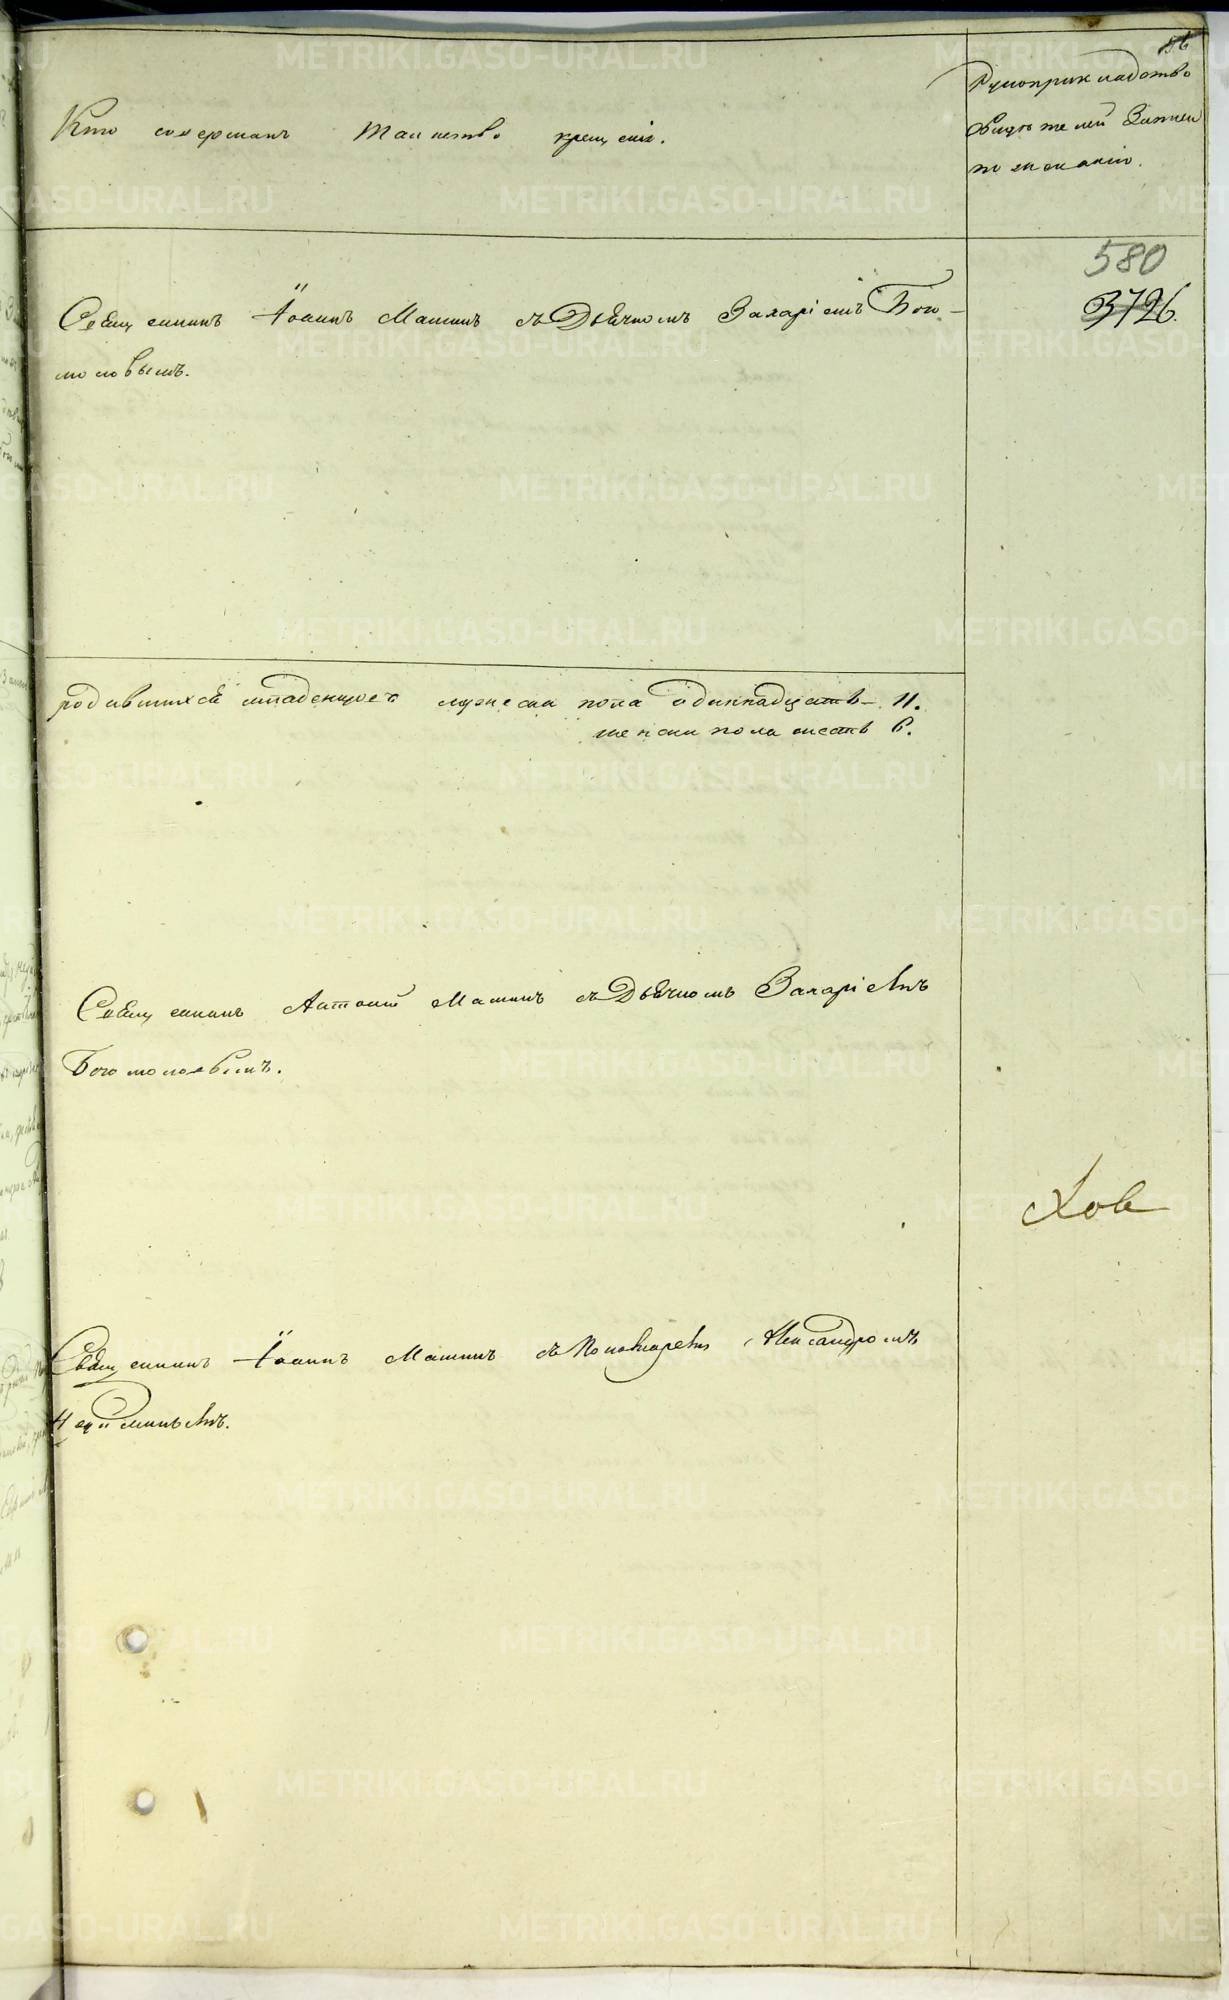 Кто совершалъ таинство крещенія.
Рукоприкладство
свидѣтелей записи
по желанію.
580
3726.
Священникъ Іоаннъ Машинъ съ Дьячкомъ Захаріемъ Бого-
моловымъ.
родившихся младенцевъ мужеска пола одиннадцать – 11.
женска пола шесть 6.
Священникъ Антоній Машинъ съ Дьячкомъ Захаріемъ
Богомоловымъ.
Священникъ Іоаннъ Машинъ съ Пономаремъ Александромъ
METRIKI.GASO-URAL.RU